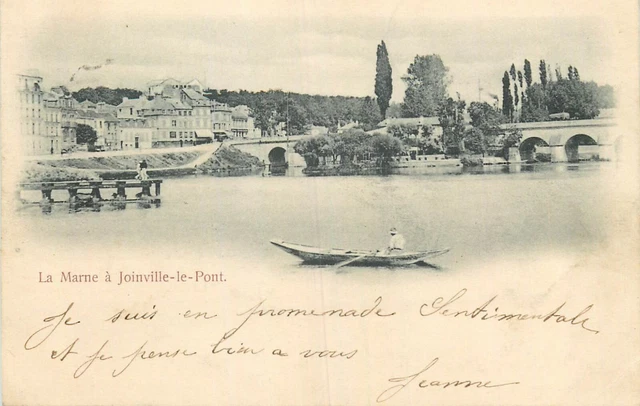 La Marne à Joinville-le-Pont.
Je suis en promenade Sentimentale
et je pense bien a vous
Jeanne